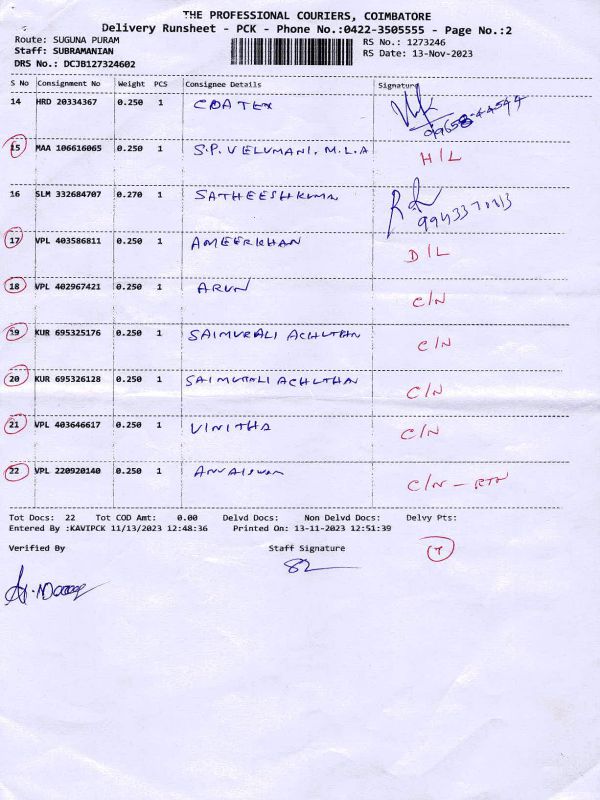 THE PROFESSIONAL COURIERS, COIMBATORE
Delivery Runsheet - PCK - Phone No.:0422-3505555 - Page No.:2
Route: SUGUNA PURAM RS No.: 1273246
Staff: SUBRAMANIAN RS Date: 13-Nov-2023
DRS No.: DCJB127324602
S No Consignment No Weight PCS Consignee Details Signature
14 HRD 20334367 0.250 1 COATEX
15 MAA 106616065 0.250 1 S.P. VELUMANI. M.L.A H/L
16 SLM 332684707 0.270 1 SATHEESHKUMA
17 VPL 403586811 0.250 1 AMEERKHAN D/L
18 VPL 402967421 0.250 1 ARUN C/N
19 KUR 695325176 0.250 1 SAIMURALI ACHUTHAN C/N
20 KUR 695326128 0.250 1 SAIMURALI ACHUTHAN C/N
21 VPL 403646617 0.250 1 VINITHA C/N
22 VPL 220920140 0.250 1 C/N - RTN
Tot Docs: 22 Tot COD Amt: 0.00 Delvd Docs: Non Delvd Docs: Delvy Pts:
Entered By :KAVIPCK 11/13/2023 12:48:36 Printed On: 13-11-2023 12:51:39
Verified By Staff Signature